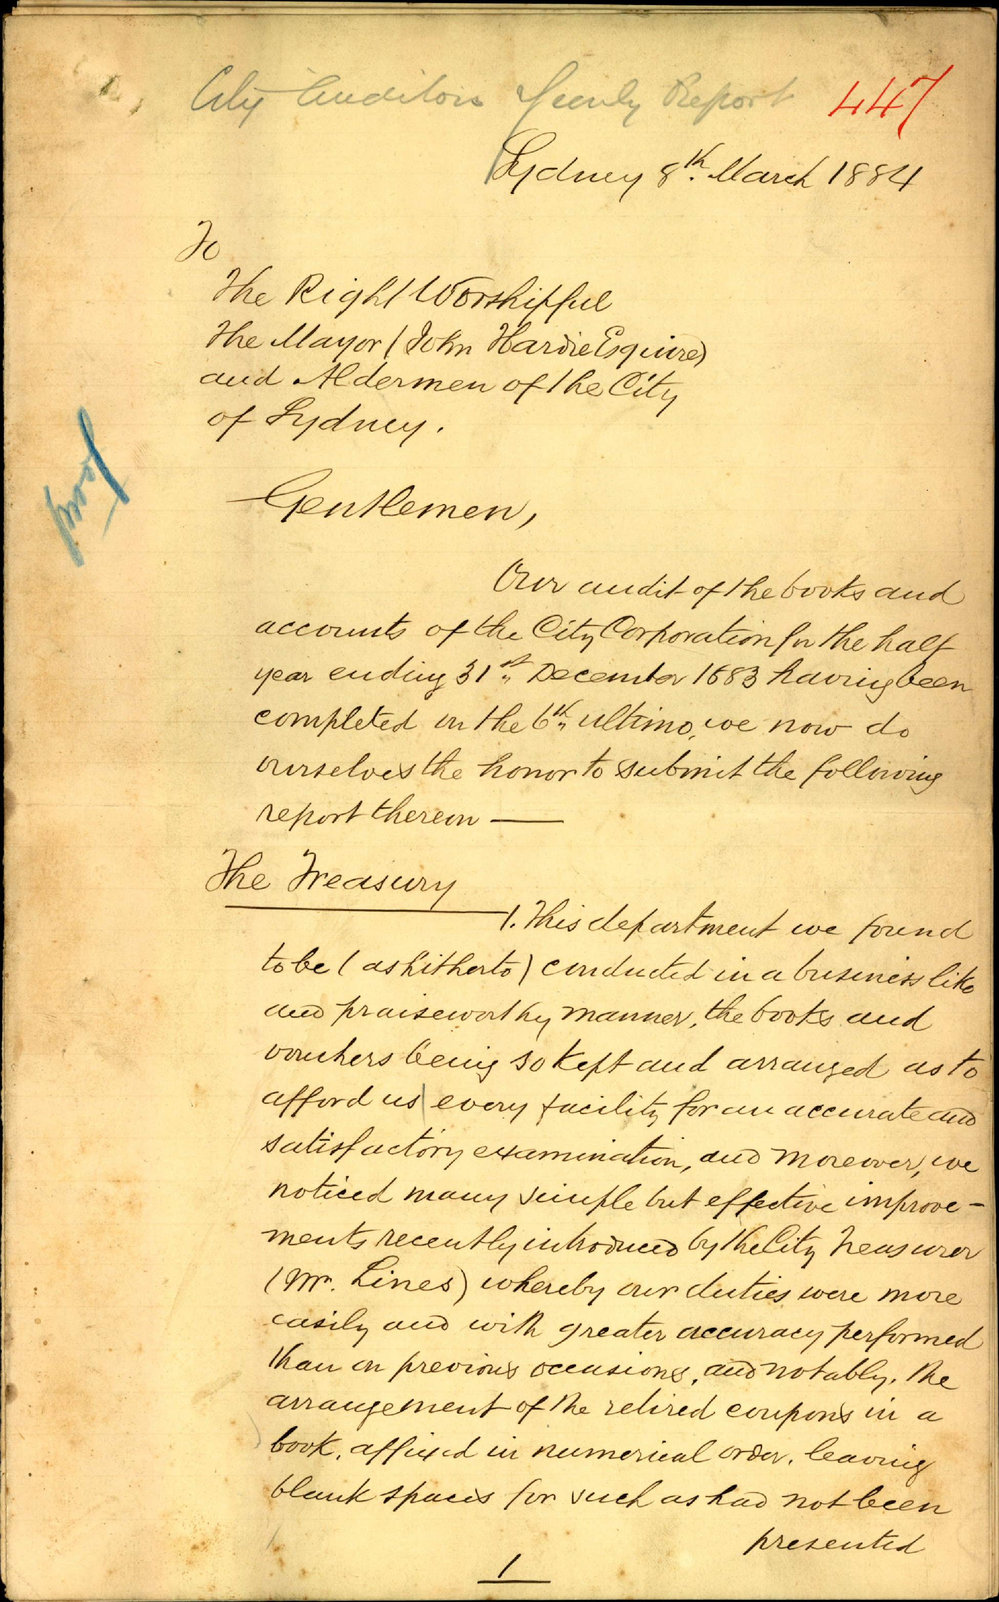 City Auditors Yearly Report 447
Sydney 8th. March 1884
To
The Right Worshipful
The Mayor (John Hardie Esquire)
and Aldermen of the City
of Sydney.
Gentlemen,
Our audit of the books and
accounts of the City Corporation for the half
year ending 31st. December 1883 having been
completed on the 6th. ultimo, we now do
ourselves the honor to submit the following
report thereon —
The Treasury
1. This department we found
to be (as hitherto) conducted in a business like
and praiseworthy manner, the books and
vouchers being so kept and arranged as to
afford us every facility for an accurate and
satisfactory examination, and moreover, we
noticed many simple but effective improve-
ments recently introduced by the City Treasurer
(Mr. Lines) whereby our duties were more
easily and with greater accuracy performed
than on previous occasions, and notably, the
arrangement of the retired coupons in a
book, affixed in numerical order, leaving
blank spaces for such as had not been
presented
1